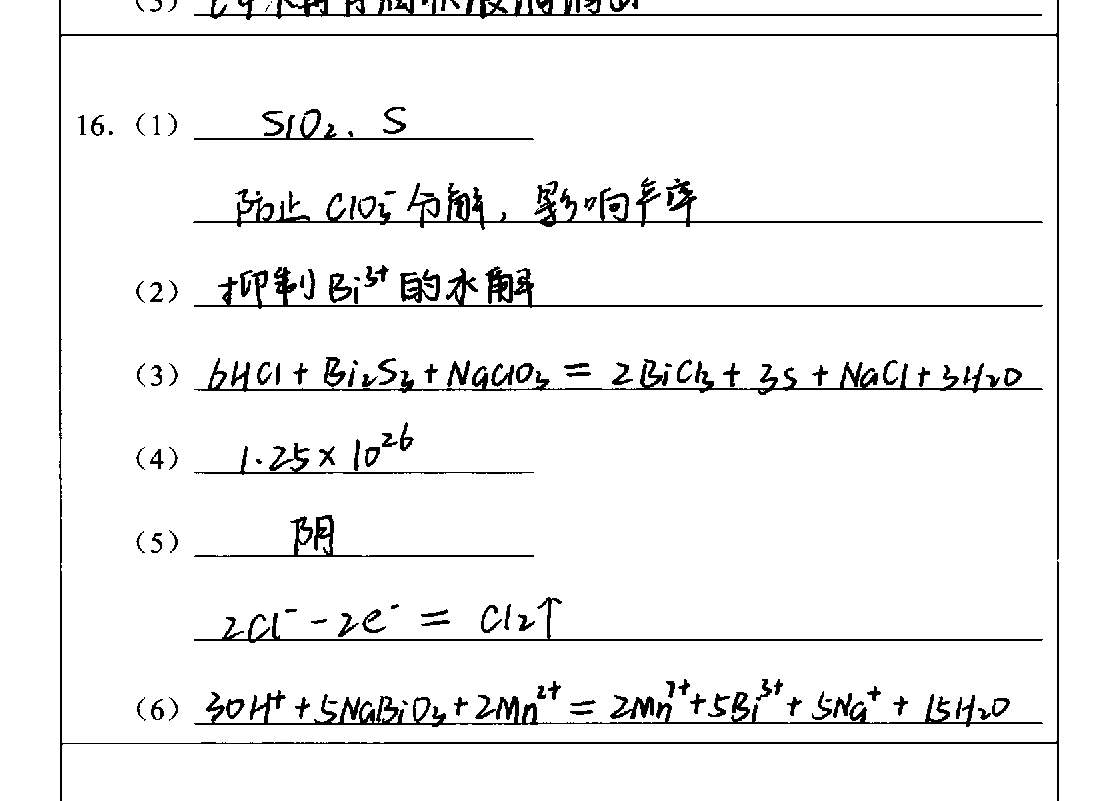 16. (1) SiO₂、S
防止 ClO₃⁻ 分解，影响产率
(2) 抑制 Bi³⁺ 的水解
(3) 6HCl + Bi₂S₃ + NaClO₃ = 2BiCl₃ + 3S + NaCl + 3H₂O
(4) 1.25×10²⁶
(5) 阴
2Cl⁻ - 2e⁻ = Cl₂↑
(6) 30H⁺ + 5NaBiO₃ + 2Mn²⁺ = 2Mn⁷⁺ + 5Bi³⁺ + 5Na⁺ + 15H₂O